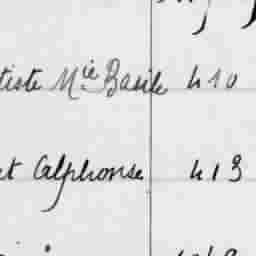 tiste Mie Basile 410
et Alphonse 413